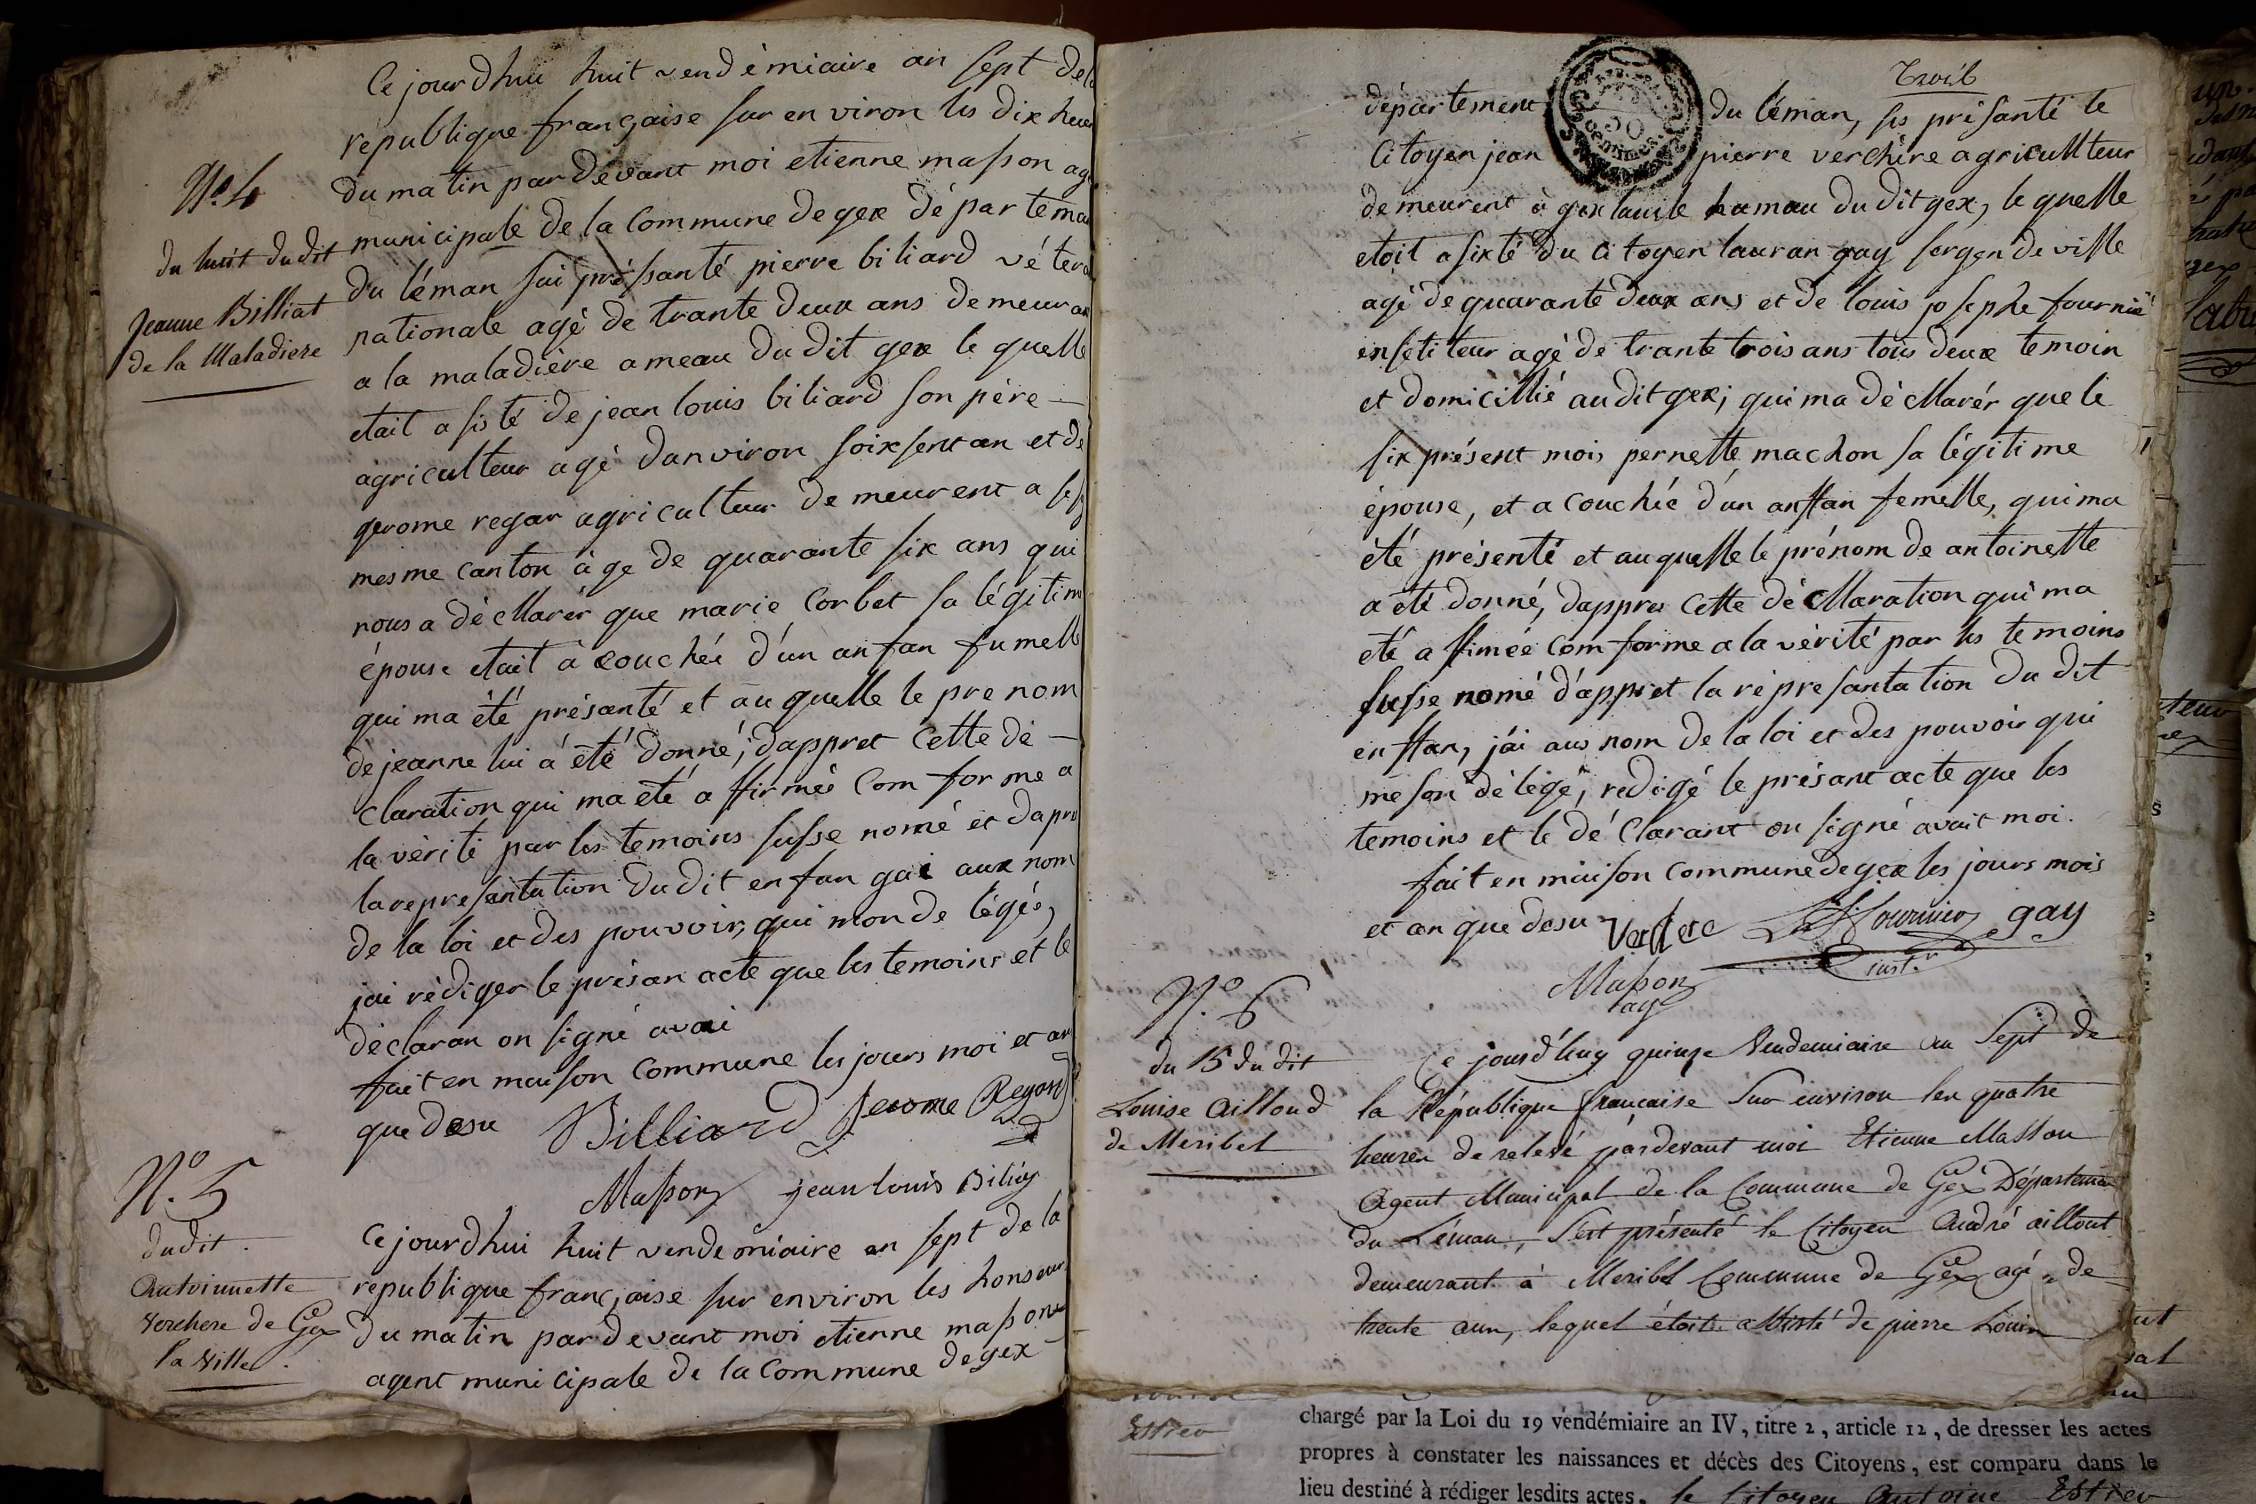 Ce jourdhui huit vendémiaire an sept de la
republique française sur en viron les dix heur
N.o 4
du matin par dévant moi etienne masson ag
du huit dudit
municipale de la commune de gex départema
Jeanne Billiat
du léman sai présanté pierre biliard vétera
de la Maladiere
nationale agé de trante deux ans demeuran
a la maladière ameau du dit gex le quelle
etait a sisté de jean louis biliard son père —
agriculteur agé danviron soixsent an et de
gerome regar agriculteur de meurent a
mesme canton àge de quarante six ans qui
nous a décllarér que marie Corbet sa légitim
épouse etait à couchéé d'un anfan fumelle
qui ma été présanté et auquelle le prenom
de jeanne lui a été donné; dappret cette dé —
claration qui ma été affirméé Com for me a
la vérité par les temoins susse nomé et dapre
la représantation du dit enfan gai aux nom
de la loi et des pouvoir, qui mon de légés,
jai rédiger le présan acte que les temoins et le
déclaran on signé avai
fait en maison commune les jours moi et an
que desu Billiard Jerome Regard
Masson jean louis Biliay
N.o 5
dudit.
Ce jourdhui huit vendemiaire an sept de la
Antoinnette
republique française sur environ les honseur
Verchere de Gex
du matin par devant moi etienne masson
la Ville.
agent municipale de la Commune de gex
Trois
département 50 centimes du léman, ses présanté le
Citoyen jean pierre verchère agricullteur
demeurent à gex laville hameau du dit gex, le quelle
etoit asixté du Citoyen lauran gay sergen de ville
agé de quarante deux ans et de louis josephe fournié
ensetiteur agé de trante trois ans tous deux temoin
et domicillié au dit gex; qui ma décllarér que le
six présent mois pernette machon sa légitime
épouse, et a couchéé d'un anffan femelle, qui ma
été présenté et auquelle le prénom de antoinette
a été donné, dappres cette décllaration qui ma
été affiméé Com forme a la vérité par les temoins
susse nomé d'appret la répresantation du dit
enffan, j'ai aus nom de la loi et des pouvoir qui
me son délégé, redigé le présant acte que les
temoins et le déclarant on signé avait moi.
fait en maison commune de gex les jours mois
et an que desu Verchere L. J. Fournier gay
inst.r
Masson
ag
N.o 6
Ce jourd'huy quinze Vendemiaire an Sept de
du 15 du dit
la République française Sur environ les quatre
Louise Ailloud
heures de relevé pardevant moi Etienne Masson
de Meribel
Agent Municipal de la Commune de Gex Départemen
du Léman, s'est présenté le Citoyen André aillout
demeurant à Meribel Commune de Gex agé de
trente ans, lequel étoit assisté de pierre Louis
chargé par la Loi du 19 vendémiaire an IV, titre 2, article 12, de dresser les actes
propres à constater les naissances et décès des Citoyens, est comparu dans le
lieu destiné à rédiger lesdits actes, le Citoyen Antoine